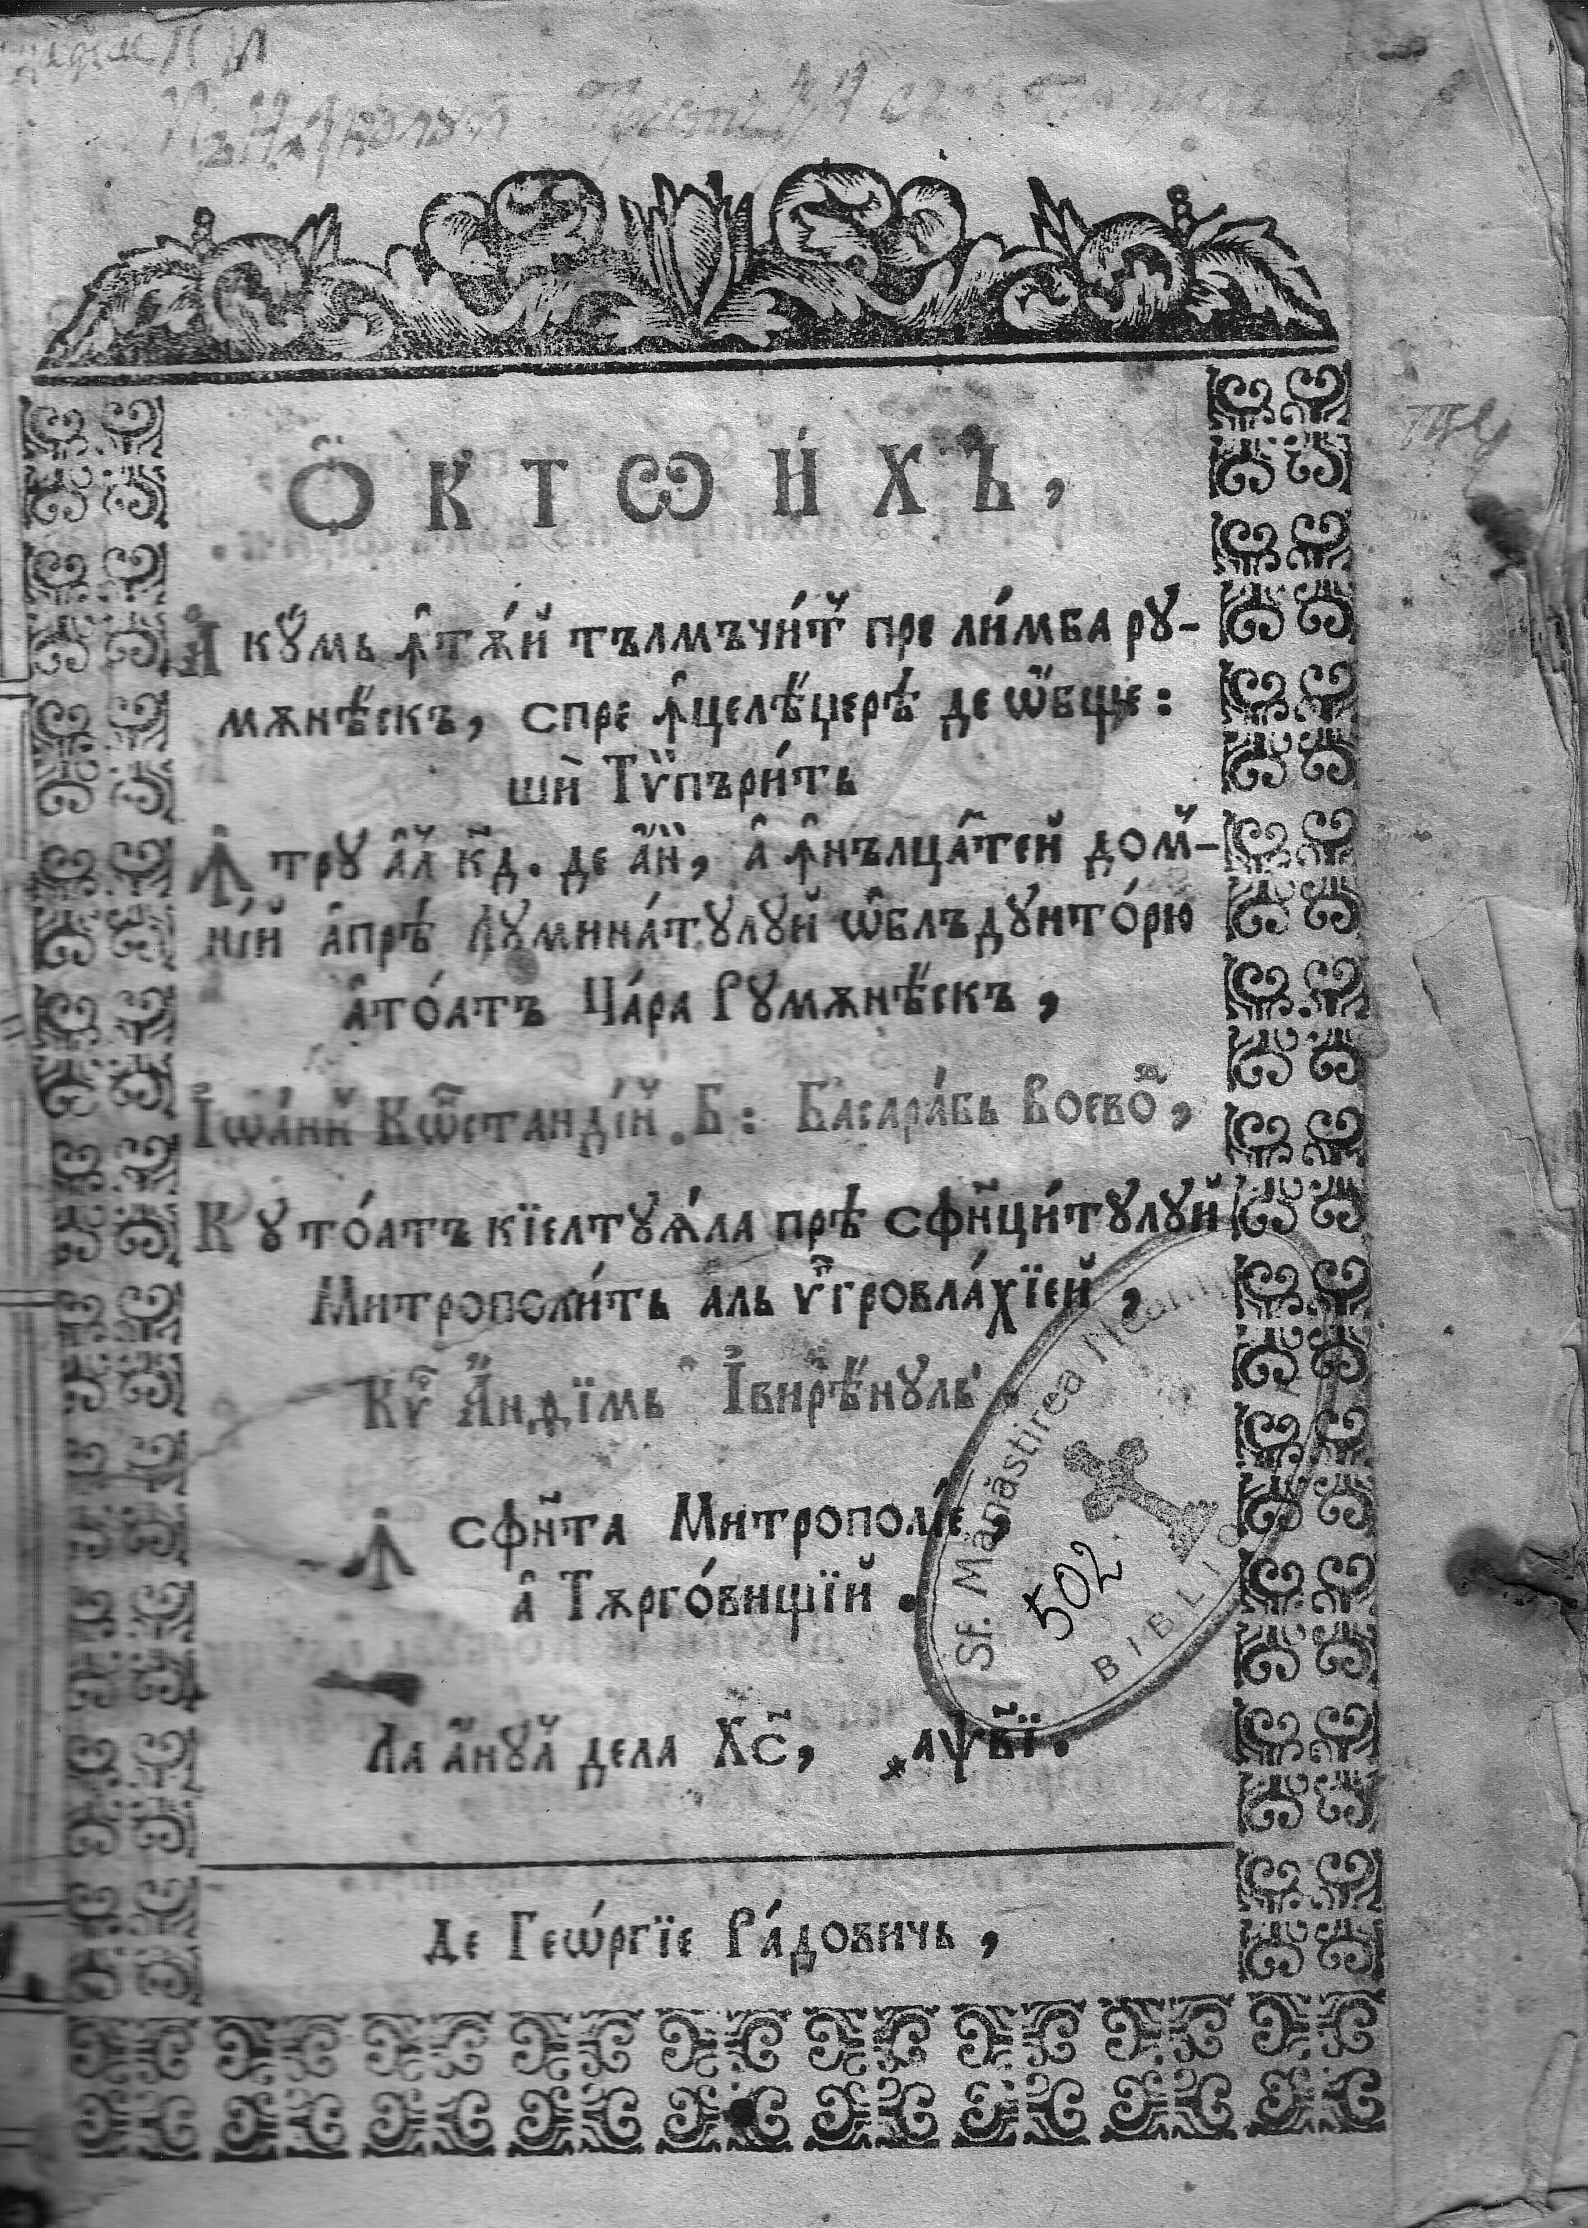 Ѻ҆КТѠИ́ХЪ,
А҆кꙋ́мь ꙟ҆тѫ́й тълмъчи́т пре ли́мба рꙋ-
мѫнѣ́скъ, спре ꙟ҆целѣ́џерѣ де ѡ҆́бще:
шѝ Тѵпъри́ть
Ꙟтрꙋ а҆л к҃д. де а҆н҃и, а҆ ꙟ҆нълца́тей дом-
ні́й а҆прѣ́ Лꙋмина́тꙋлꙋй ѡ҆блъдꙋито́рю
а҆то́атъ Ца́ра Рꙋмѫнѣ́скъ,
І҆ѡа́нй Кѡстанді́й .Б: Басара́бь Воево́д,
Кꙋ то́атъ кїелтꙋѧ́ла прѣ сфн҃ци́тꙋлꙋй
Митрополи́ть аль ѵ҆гговла́хїей,
Кѵ҆ А҆́нѳімь І҆вирѣ́нꙋль.
Ꙟ сфн҃та Митрополі́е,
а҆ Тѫрго́вищїй.
Ла а҆́нꙋл дела Хс҃, ҂аѱв҃і.
Де Гео́ргїе Ра́довичь,
Sf. Mănăstirea Neamț
502
BIBLIO